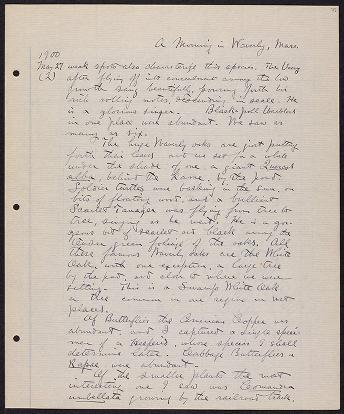 A Morning in Waverly, Mass.
1900
May 27 weak spots also characterize this species. The Veery
(2) after flying off into concealment among the low
growth sang beautifully, pouring forth his
rich rolling notes, descending in scale. He
is a glorious singer. Black-poll Warblers
in one place were abundant. We saw as
many as six.
The huge Waverly oaks are just putting
forth their leaves and we sat for a while
under the shade of one, a giant Quercus
alba, behind the Kame, by the pond.
Spotted turtles were basking in the sun, on
bits of floating wood, and a brilliant
Scarlet Tanager was flying from tree to
tree, singing as he went. He is a gor-
geous bit of scarlet and black among the
tender green foliage of the oaks. All
these famous Waverly Oaks are the White
Oak, with one exception, a large tree
by the pond, and close to where we were
sitting. This is a Swamp White Oak
a tree common in our region in wet
places.
Of Butterflies the American Copper was
abundant, and I captured a single speci-
men of a Hesperid, whose species I shall
determine later. Cabbage Butterflies
Rapae, were abundant.
Of the smaller plants the most
interesting one I saw was Comandra
umbellata growing by the railroad track.